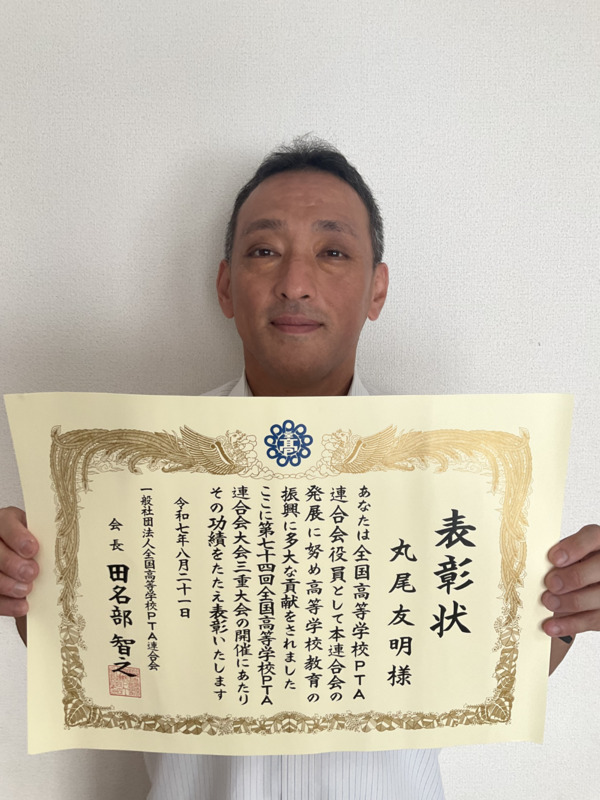 高
表彰状
丸尾友明様
あなたは全国高等学校PTA
連合会役員として本連合会の
発展に努め高等学校教育の
振興に多大な貢献をされました
ここに第七十四回全国高等学校PTA
連合会大会三重大会の開催にあたり
その功績をたたえ表彰いたします
令和七年八月二十一日
一般社団法人全国高等学校PTA連合会
会長 田名部智之